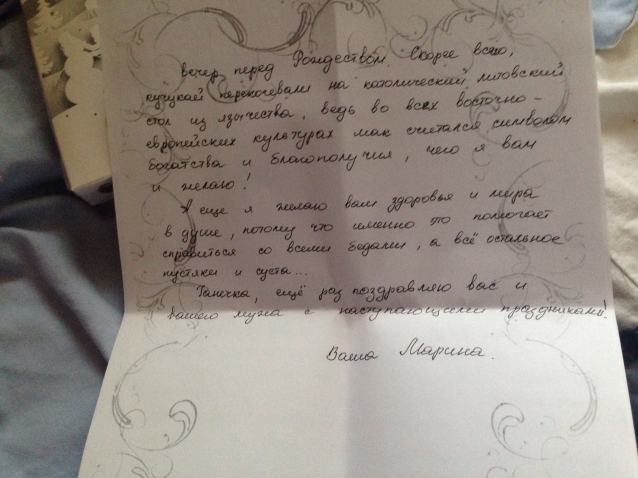 вечер перед Рождеством. Скорее всего,
кучукай перекочевали на католический литовский
стол из язычества, ведь во всех восточно-
европейских культурах мак считался символом
богатства и благополучия, чего я вам
и желаю!
А ещё я желаю вам здоровья и мира
в душе, потому что именно это помогает
справиться со всеми бедами, а всё остальное
пустяки и суета...
Танечка, ещё раз поздравляю вас и
вашего мужа с наступающими праздниками!
Ваша Марина.